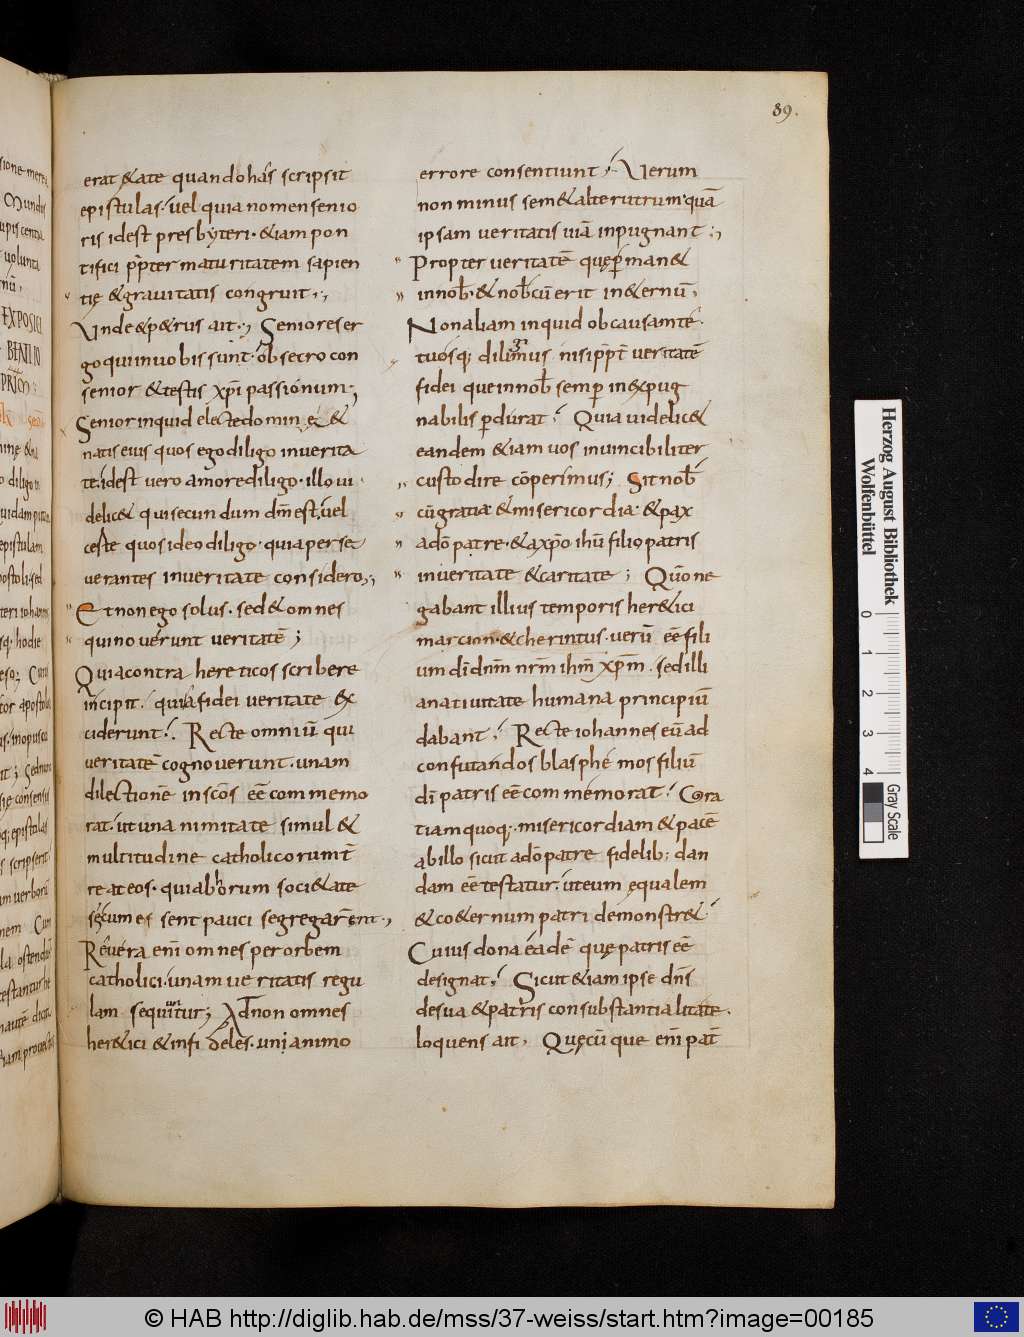 89.
erat &ate quando has scripsit
epistulas. uel quia nomen senio
ris idest presbyteri. &iam pon
tifici pṗter maturitatem sapien
tię & grauitatis congruit.,
Unde & p&rus ait., Seniores er
go qui in uobis sunt. obsecro con
senior & testis xp̄i passionum.,
Senior inquid electe domin ę &
natis eius quos ego diligo in uerita
te. idest uero amore diligo. illo ui
delic& qui secundum dm̄ est, uel
certe quos ideo diligo. quia perse
uerantes in ueritate considero.,
Et non ego solus. sed & omnes
qui nouerunt ueritatē ;
Quia contra hereticos scribere
incipit. qui a fidei ueritate ex
ciderunt. Recte omniū qui
ueritatē cognouerunt. unam
dilectionē in scōs eē commemo
rat. ut una nimitate simul &
multitudine catholicorum t̄
reat eos. qui ab horum soci&ate
secum essent pauci segregarent.,
Reuera enī omnes per orbem
catholici. unam ueritatis regu
lam sequuntur; Ad non omnes
her&ici & infideles. uni animo
errore consentiunt; Uerum
non minus se m& alterutrum. quā
ipsam ueritatis uiā inpugnant.,
Propter ueritatē quę p̄man&
in nob̄. & nob̄cū erit in &ernū,
Non aliam inquid ob causam te.
tuosq; diligimus nisi pp̄t̄ ueritatē
fidei que in nob̄ semp̄ inexpug
nabilis p̄durat. Quia uidelic&
eandem &iam uos inuincibiliter
custodire cōperimus; Sit nob̄
cū gratia & misericordia. & pax
a dō patre. & a xp̄o ihū filio patris
in ueritate & caritate ; Qūo ne
gabant illius temporis her&ici
marcion. & cherintus. uerū eē fili
um dī dn̄m nr̄m ihm̄ xp̄m. sed illi
a natiuitate humana principiū
dabant. Recte iohannes eū ad
confutandos blasphemos filiū
dī patris eē commemorat. Gra
tiam quoq;. misericordiam & pacē
ab illo sicut a dō patre fidelib; dan
dam eē testatur. ut eum ęqualem
& co&ernum patri demonstr&.
Cuius dona eadē quę patris eē
designat. Sicut &iam ipse dn̄s
de sua & patris consubstantialitate.
loquens ait, Quęcū que enī pat̄
Herzog August Bibliothek
Wolfenbüttel
0 1 2 3 4
Gray Scale
© HAB http://diglib.hab.de/mss/37-weiss/start.htm?image=00185